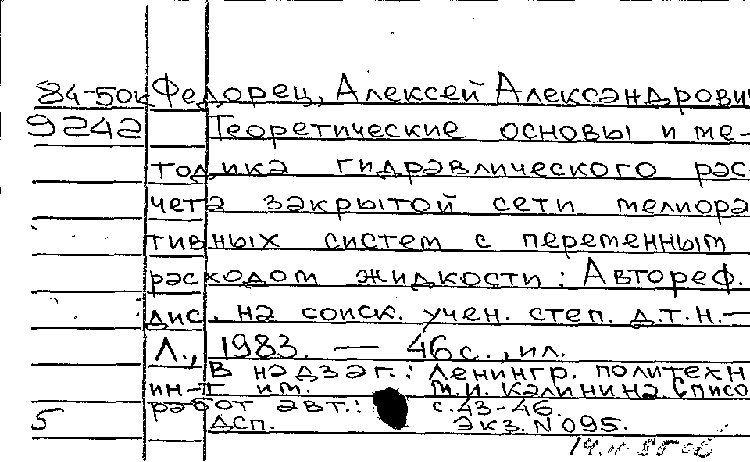 84-50к Федорец, Алексей Александрович
9242 Теоретические основы и ме-
тодика гидравлического рас-
чета закрытой сети мелиора
тивных систем с переменным
расходом жидкости: Автореф.
дис. на соиск. учен. степ. д.т.н.—
Л., 1983. — 46с., ил.
В надзаг.: Ленингр. политехн
ин-т им. М.И. Калинина. Списо
работ авт.: с.43-46.
5 ДСП. Экз. N 095.